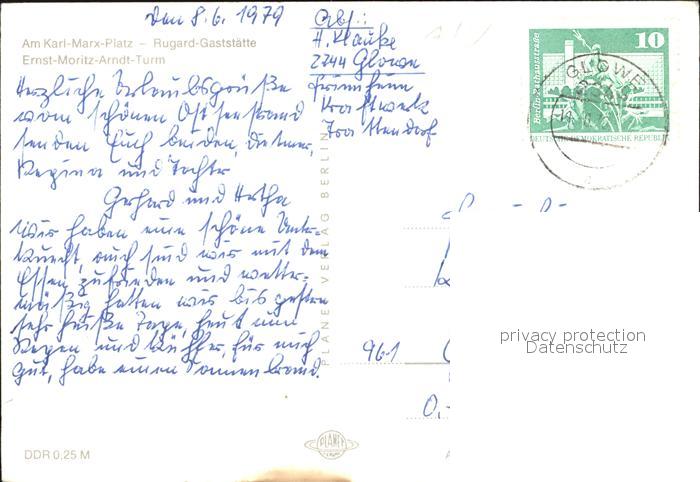 den 8.6.1979
Am Karl-Marx-Platz – Rugard-Gaststätte
Ernst-Moritz-Arndt-Turm
Herzliche Urlaubsgrüße
vom schönen Ostseestrand
senden Euch beiden, Dietmar,
Regina und Tochter
Gerhard und Hertha
Wir haben eine schöne Unter-
kunft, auch sind wir mit dem
Essen zufrieden und wetter-
mäßig hatten wir bis gestern
sehr heiße Tage, heut nun
Regen und kühler, für mich
gut, habe einen Sonnenbrand.
Abs.:
H. Klauke
2344 Glowe
Kraftwerk
Trattendorf
PLANET VERLAG BERLIN
Berlin-Rathausstraße
10
DEUTSCHE DEMOKRATISCHE REPUBLIK
GLOWE
961
0,-
privacy protection
Datenschutz
PLANET
DDR 0,25 M